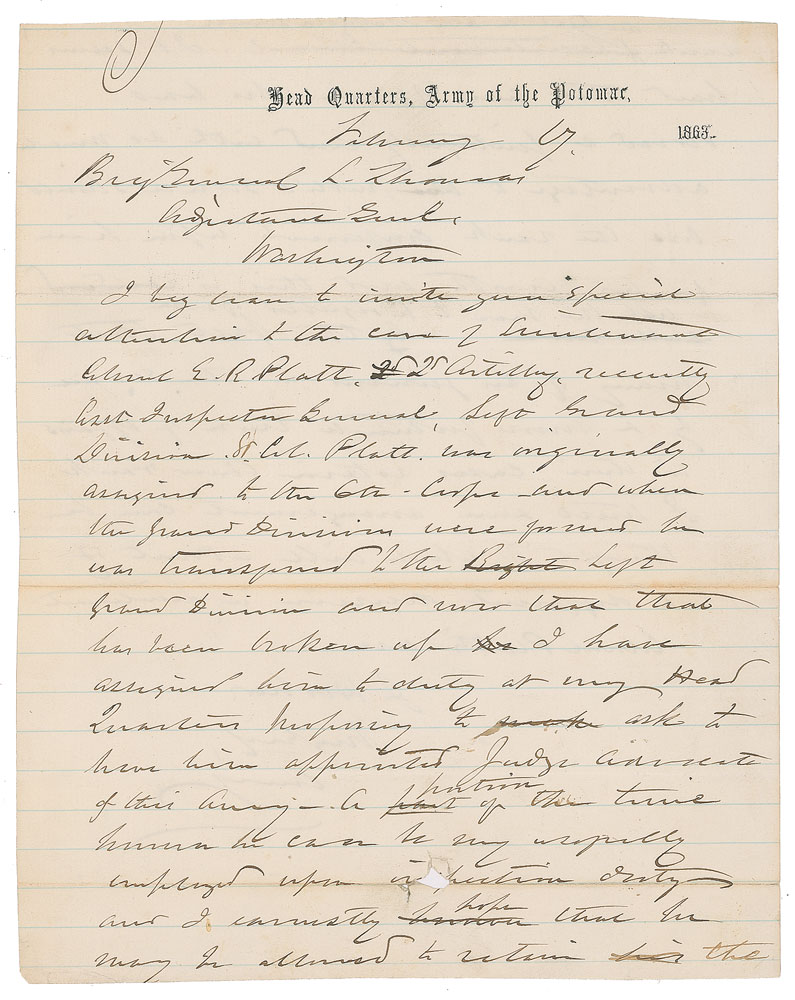 Head Quarters, Army of the Potomac,
February 17, 1863.
Brig General L. Thomas
Adjutant Genl.
Washington
I beg leave to invite your special
attention to the case of Lieutenant
Colonel E. R. Platt, 2d 2d Artillery, recently
Asst Inspector General, Left Grand
Division. Lt. Col. Platt. was originally
assigned to the 6th Corps and when
the Grand Divisions were formed he
was transferred to the Right Left
Grand Division and now that that
has been broken up I have
assigned him to duty at my Head
Quarters proposing to make ask to
have him appointed Judge Advocate
of this Army - A part portion of the time
however he can be usefully
employed upon inspection duty
and I earnestly hope that he
may be allowed to retain his the